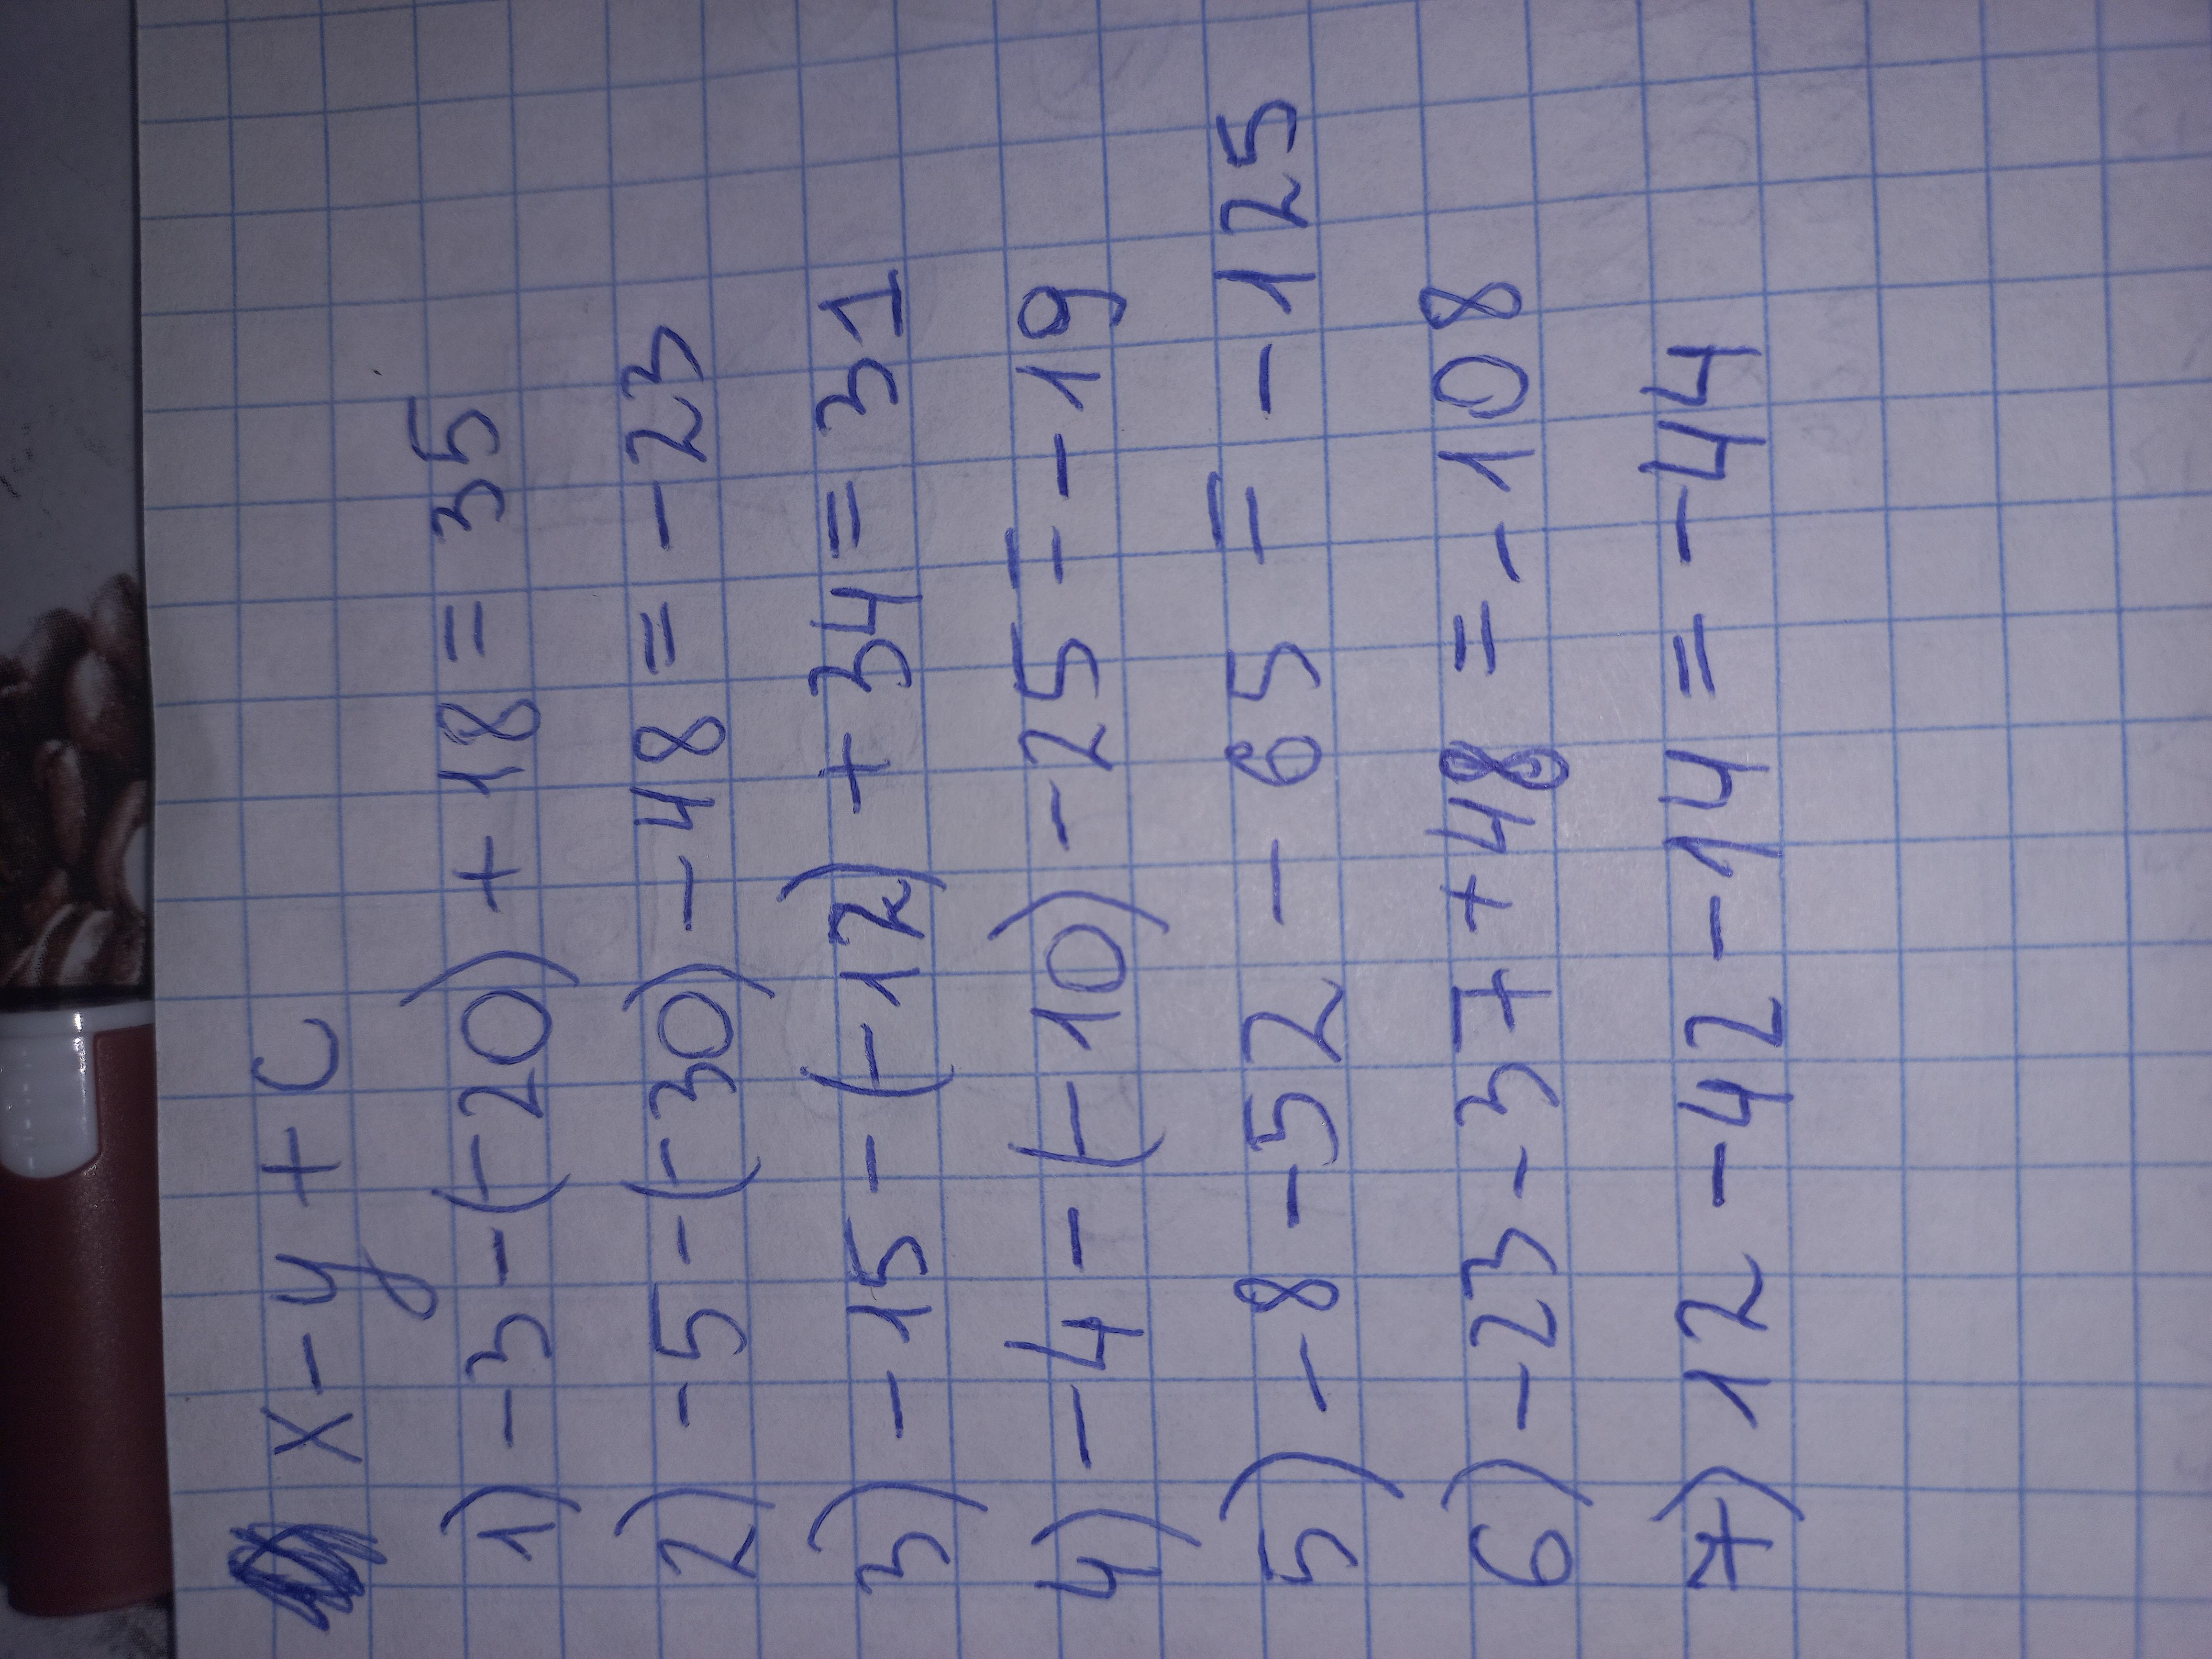 x - y + c
1) -3 - (-20) + 18 = 35
2) -5 - (-30) - 48 = -23
3) -15 - (-12) + 34 = 31
4) -4 - (-10) - 25 = -19
5) -8 - 52 - 65 = -125
6) -23 - 37 + 48 = -108
7) 12 - 42 - 14 = -44